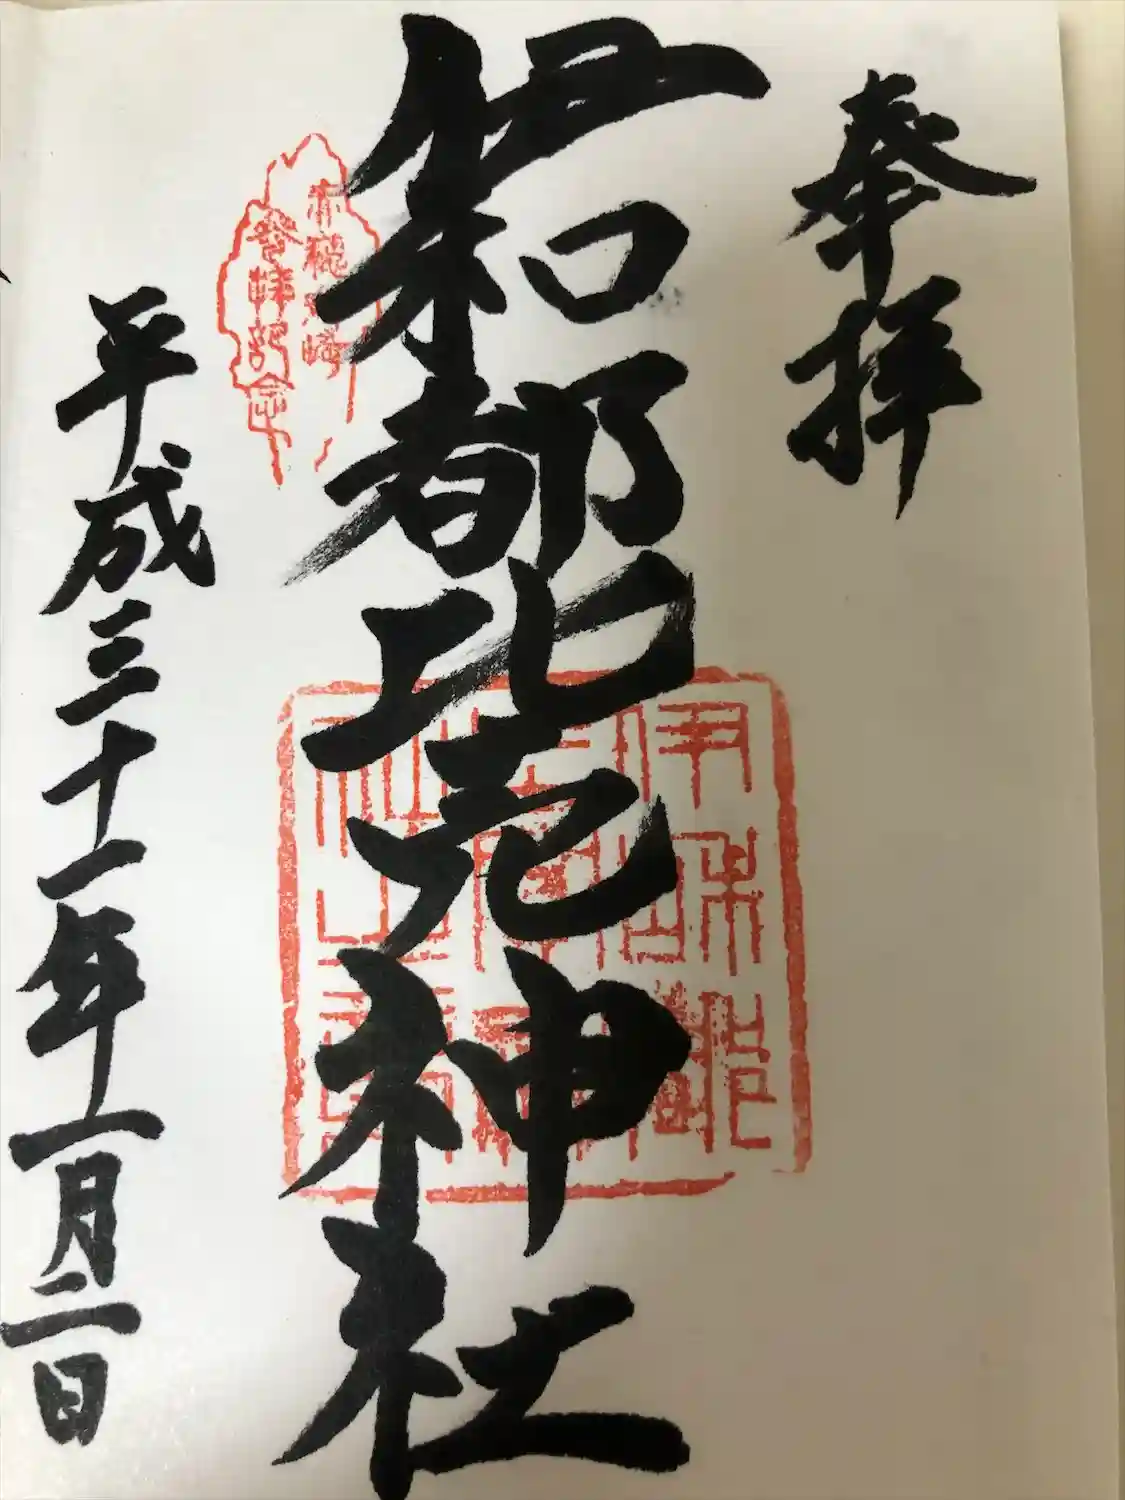 奉拝
伊和都比売神社
赤穂御崎
参拝記念
平成三十一年一月二日